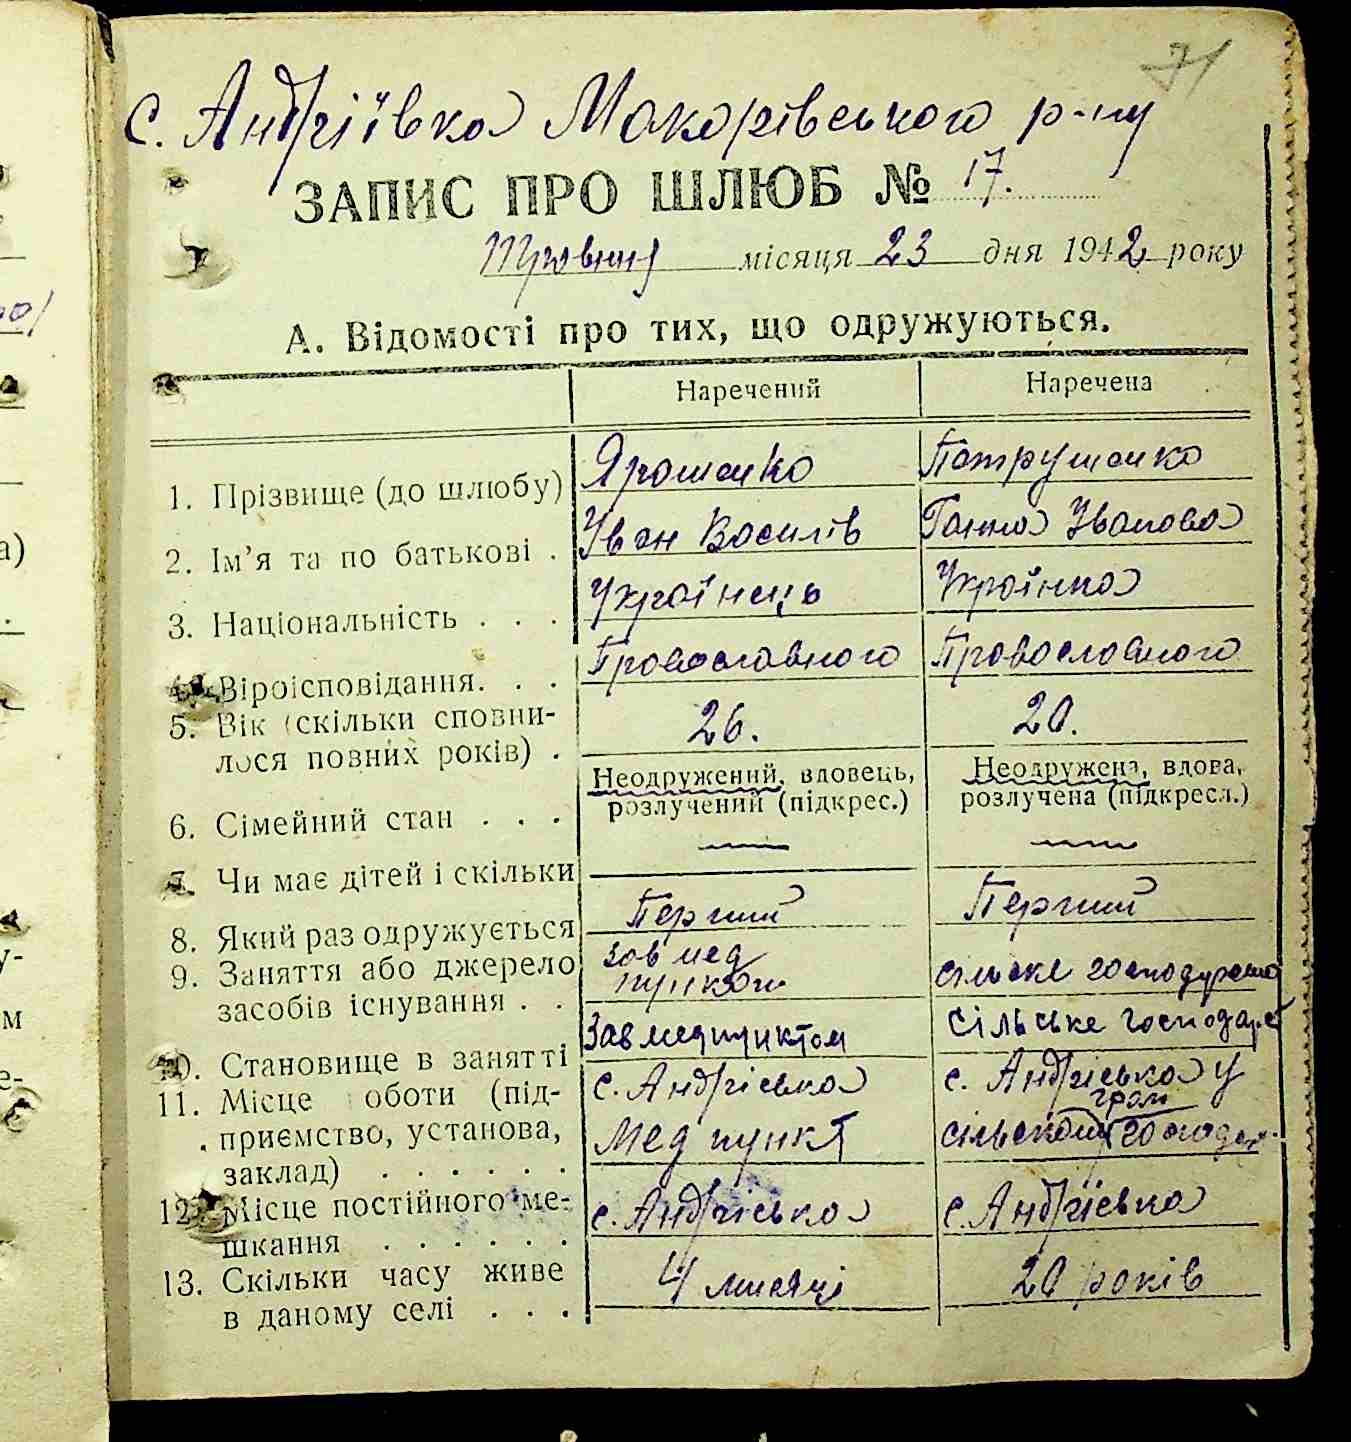 71
с. Андріївка Макарівського р-ну
ЗАПИС ПРО ШЛЮБ № 17.
Травня місяця 23 дня 1942 року
А. Відомості про тих, що одружуються.
Наречений Наречена
1. Прізвище (до шлюбу) Ярошенко Петрушенко
2. Ім'я та по батькові . Іван Василів Ганна Іванова
3. Національність . . . Українець Українка
4. Віроісповідання. . . Православного Православного
5. Вік (скільки сповни-
лося повних років) . 26. 20.
Неодружений, вдовець, Неодружена, вдова,
розлучений (підкрес.) розлучена (підкресл.)
6. Сімейний стан . . .
7. Чи має дітей і скільки — —
8. Який раз одружується Перший Перший
9. Заняття або джерело зав мед
засобів існування . . пунктом сільске господарство
10. Становище в занятті Завмедпунктом сільське господарст
11. Місце роботи (під- с. Андріівка с. Андріівка у
гром
приємство, установа, Мед пункт сільском господар.
заклад) . . . . . .
12. Місце постійного ме- с. Андріівка с. Андріївка
шкання . . . . . .
13. Скільки часу живе 4 місяці 20 років
в даному селі . . .
а)
у-
м
е-